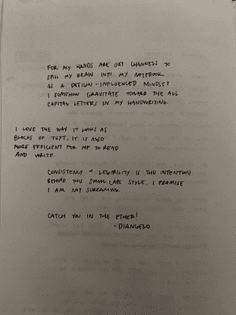 FOR MY HANDS ARE JUST CHANNELS TO
SPILL MY BRAIN INTO MY NOTEBOOK.
AS A DESIGN-INFLUENCED MINDSET
I SOMEHOW GRAVITATE TOWARD THE ALL
CAPITAL LETTERS IN MY HANDWRITING.
I LOVE THE WAY IT LOOKS AS
BLOCKS OF TEXT. IT IS ALSO
MORE EFFICIENT FOR ME TO READ
AND WRITE.
CONSISTENCY + LEGIBILITY IS THE INTENTION
BEHIND THIS SMALL CAPS STYLE. I PROMISE
I AM NOT SCREAMING.
CATCH YOU IN THE ETHER!
-DIANGELO